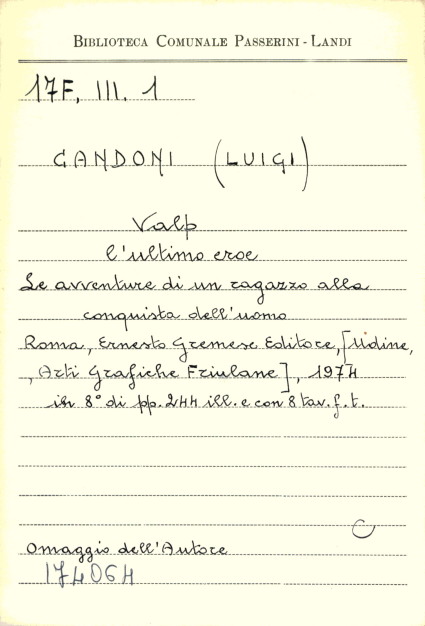 BIBLIOTECA COMUNALE PASSERINI - LANDI
17F, III. 1
GANDONI (LUIGI)
Valp
l'ultimo eroe
Le avventure di un ragazzo alla
conquista dell'uomo
Roma, Ernesto Gremese Editore, [Udine,
, Arti Grafiche Friulane], 1974
in 8° di pp. 244 ill. e con 8 tav. f. t.
C
Omaggio dell'Autore
174064